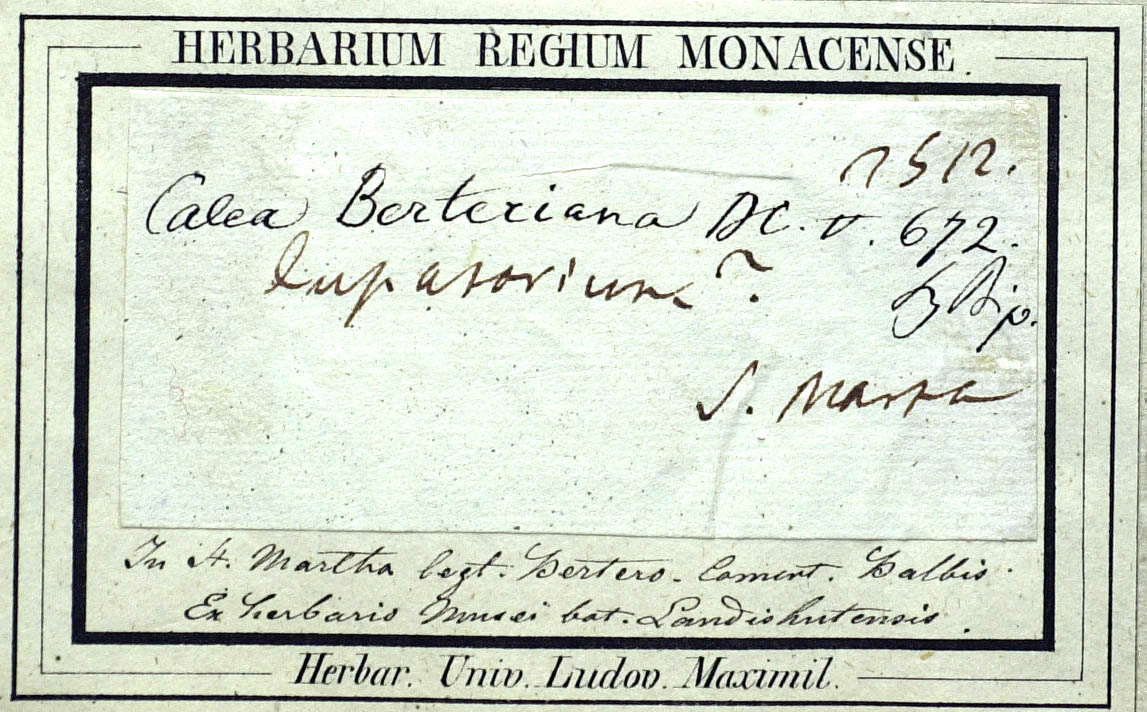 HERBARIUM REGIUM MONACENSE.
n 512.
Calea Berteriana DC. v. 672.
Eupatorium ?
Bip.
S. Marta
In St. Martha legt. Bertero. Comunt. Balbis.
Ex herbario Musei bot. Landishutensis.
Herbar. Univ. Ludov. Maximil.